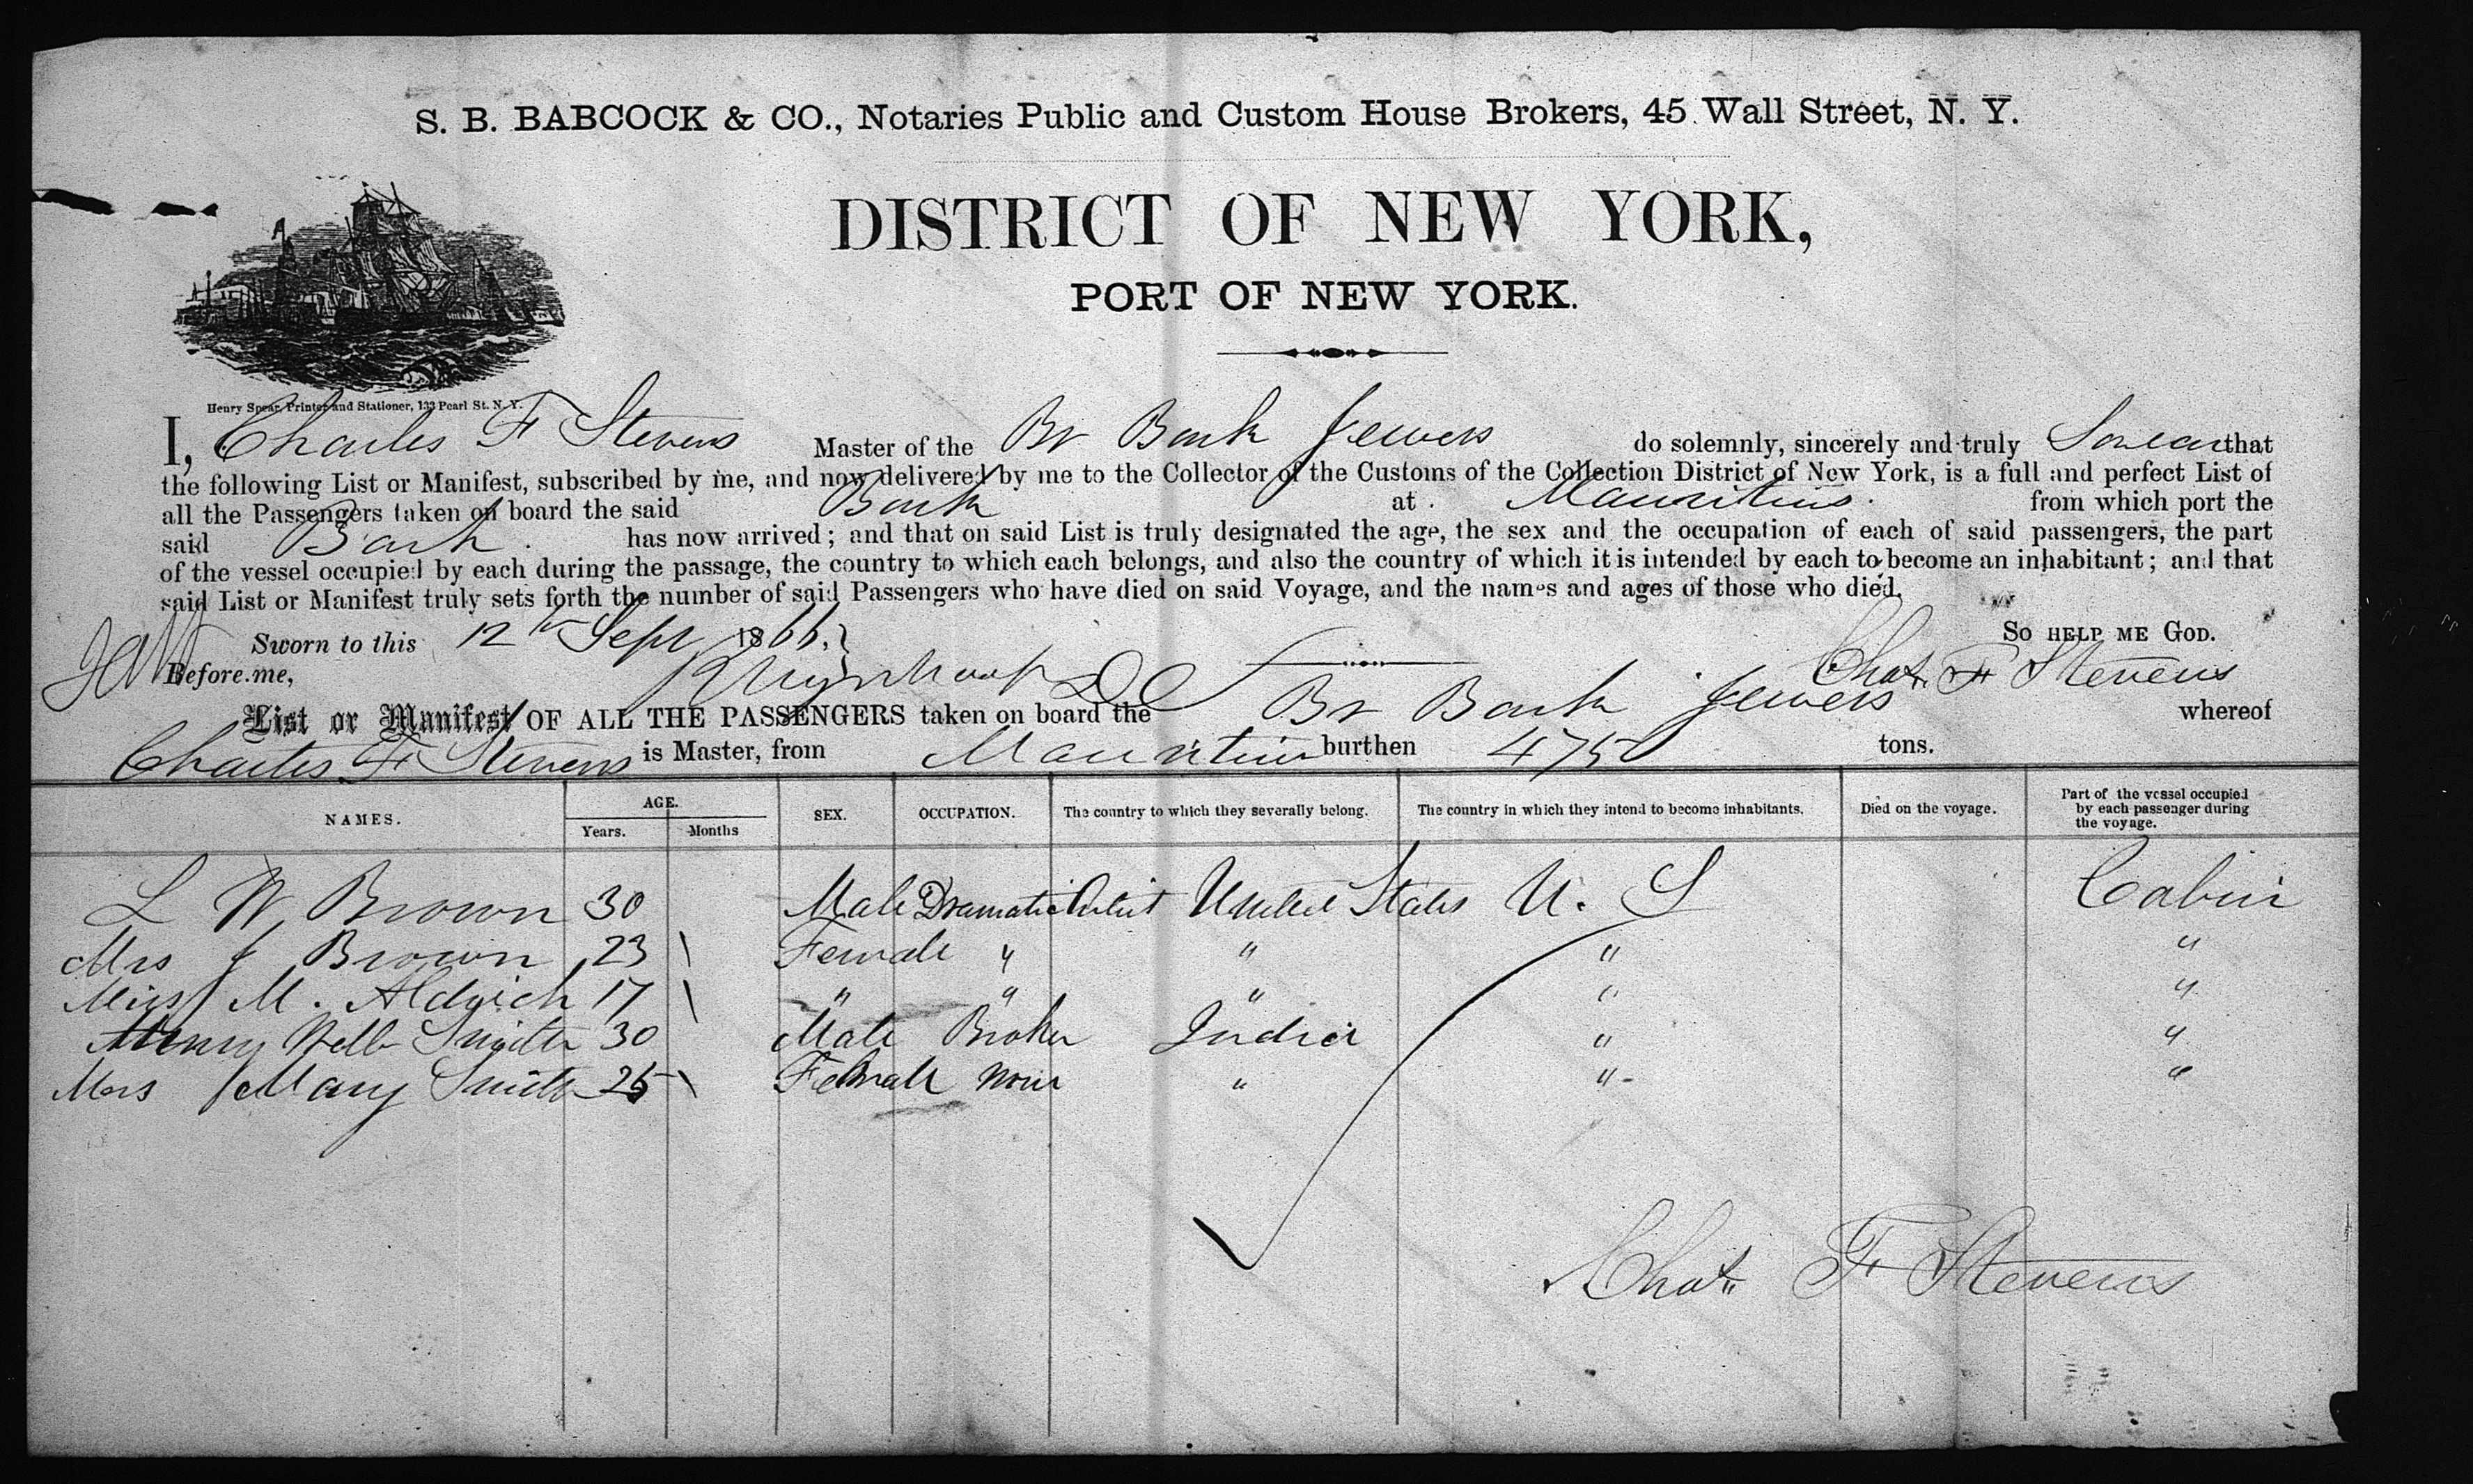 S. B. BABCOCK & CO., Notaries Public and Custom House Brokers, 45 Wall Street, N. Y.
DISTRICT OF NEW YORK,
PORT OF NEW YORK.
Henry Spear, Printer and Stationer, 133 Pearl St. N. Y.
I, Charles F Stevens Master of the Br Bark Jewers do solemnly, sincerely and truly Swear that
the following List or Manifest, subscribed by me, and now delivered by me to the Collector of the Customs of the Collection District of New York, is a full and perfect List of
all the Passengers taken on board the said Bark at Mauritius. from which port the
said Bark. has now arrived; and that on said List is truly designated the age, the sex and the occupation of each of said passengers, the part
of the vessel occupied by each during the passage, the country to which each belongs, and also the country of which it is intended by each to become an inhabitant; and that
said List or Manifest truly sets forth the number of said Passengers who have died on said Voyage, and the names and ages of those who died.
Sworn to this 12th Sept 1866. SO HELP ME GOD.
Before me, Chas. F Stevens
List or Manifest OF ALL THE PASSENGERS taken on board the Br Bark Jewers whereof
Charles F Stevens is Master, from Mauritius burthen tons.
NAMES. AGE. Years. Months SEX. OCCUPATION. The country to which they severally belong. The country in which they intend to become inhabitants. Died on the voyage. Part of the vessel occupied by each passenger during the voyage.
L W Brown 30 Male Dramatic Artist United States U. S Cabin
Mrs J Brown 23 \ Female " " " "
Miss M. Aldrich 17 \ " " " " "
Henry Webb Smith 30 Male Broker India " "
Mrs Mary Smith 25 \ Female None " " "
Chas. F Stevens